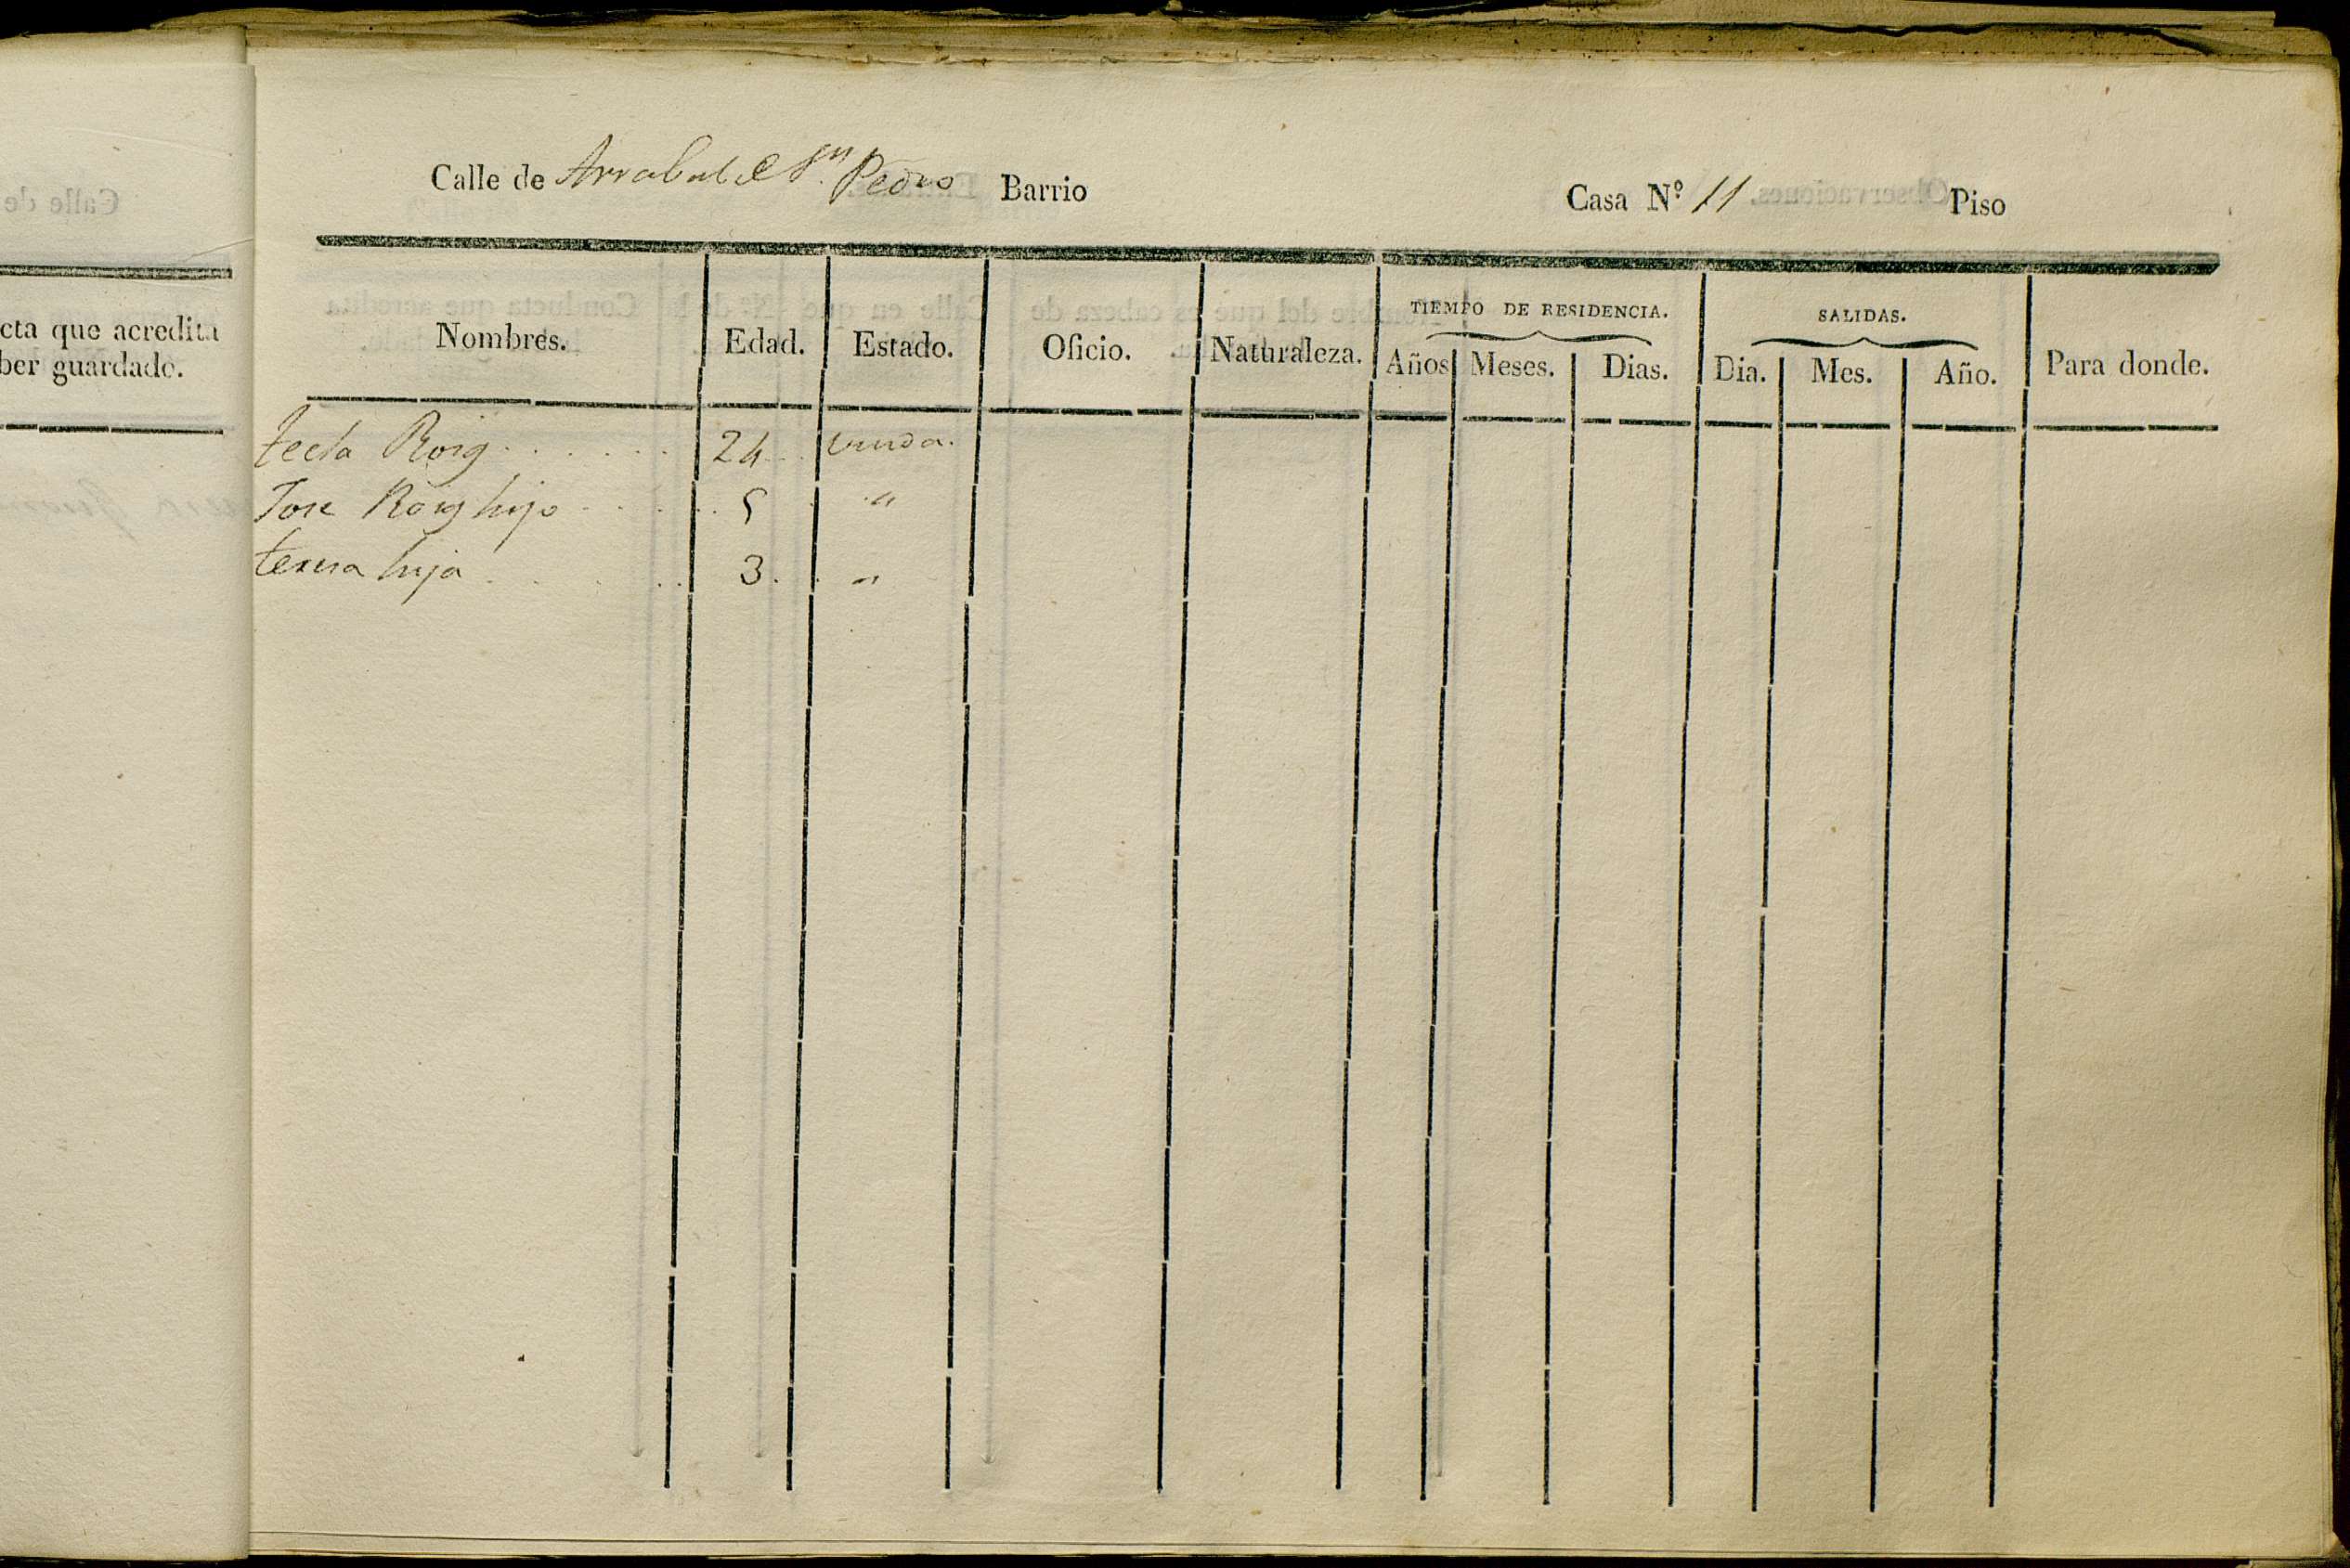 cta que acredita
ber guardado.
Calle de Arrabal de Sn. Pedro Barrio Casa Nº 11 Piso
TIEMPO DE RESIDENCIA. SALIDAS.
Nombres. Edad. Estado. Oficio. Naturaleza. Años Meses. Dias. Dia. Mes. Año. Para donde.
Tecla Roig 24 viuda.
Jose Roig hijo 5 "
teresa hija 3 "